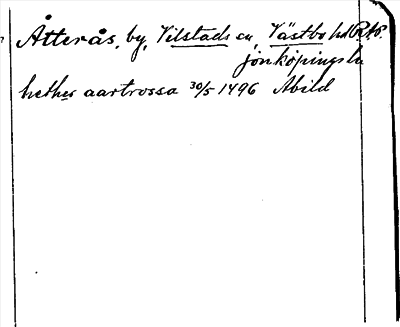 Åtterås, by, Vilstads sn, Västbo hd
Jönköpings län
hether aartrossa 30/5 1496 Abild